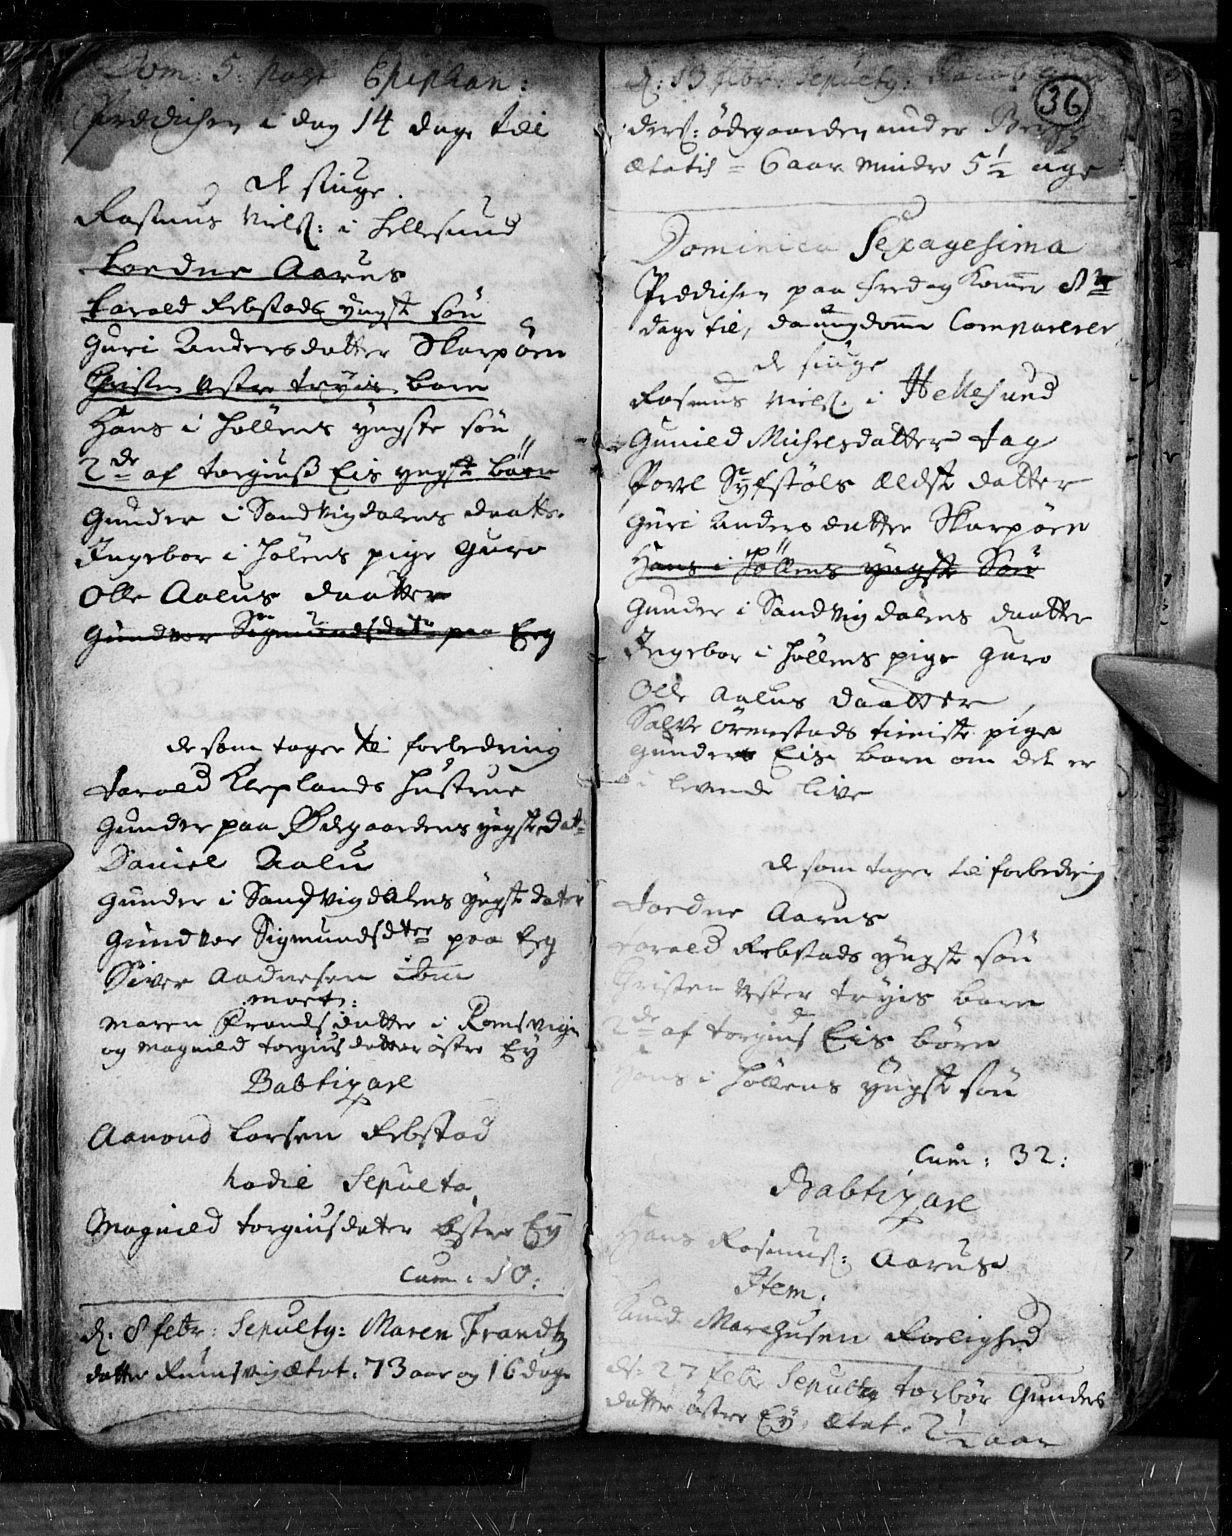 Dom: 5. post Epiphan:
Prædichen i dag 14 dage till
de siuge.
Rasmus Niels: i Hellesund
Tordne Aarus
Tarald Rebstads yngst søn
Guri Andersdatter Skarpöen
Christen Vestre tryis barn
Hans i Höllens yngste søn
2de af Torgius Eis yngste börn
Gunder i Sandvigdalens daatter
Ingebor i Hölens pige Guro
Olle Aalus daatter
Gundvor Sigmundsdatr paa Eeg
de som tager til forbedring
Tarald Kleplands hustrue
Gunder paa Ødegaardens yngste dat:
Daniel Aalu
Gunder i Sandvigdalens yngste dater
Gundvor Sigmundsdter paa Eeg
Siver Aadnesen ibm
mort:
Maren Frandsdatter i Romsvigen
og Magnild Torgiusdatter östre Ey
Babtizare
Aanond Larsen Rebstad
hodie Sepulta
Magnild Torgiusdater östre Ey
Cum: 10:
d: 8 febr: Sepulty: Maren Frandtz
datter Rumsvig ætat: 73 aar og 16 dage
36
d: 13 febr: Sepulty: Jacob
ders: ödegaarden under Berge
ætatis = 6 aar mindre 5½ uge
Dominica Sexagesima
Prædichen paa fredag Kommer 8te
dage til, da ungdomme Comparerer
de siuge
Rasmus Niels: i Hellesund
Gunild Michelsdatter Tag
Povel Syfstöls ældste datter
Guri Andersdatter Skarpöen
Hans i Höllens yngste Søn
Gunder i Sandvigdalens daatter
Ingebor i Höllens pige Guro
Olle Aalus daatter
Salve Örmestads tieniste pige
Gunders Eis barn om det er
i levende live
de som tager til forbedring
Tordne Aarus
Tarald Rebstads yngste søn
Christen Vester tryis barn
2de af Torgius Eis börn
Hans i Höllens yngste søn
Cum: 32:
Babtizare
Hans Rasmus: Aarus
Item:
Knud Marchusen Roelighed
d: 27 febr Sepulty Torbör Gunders
datter östre Ey, ætat. 2½ aar